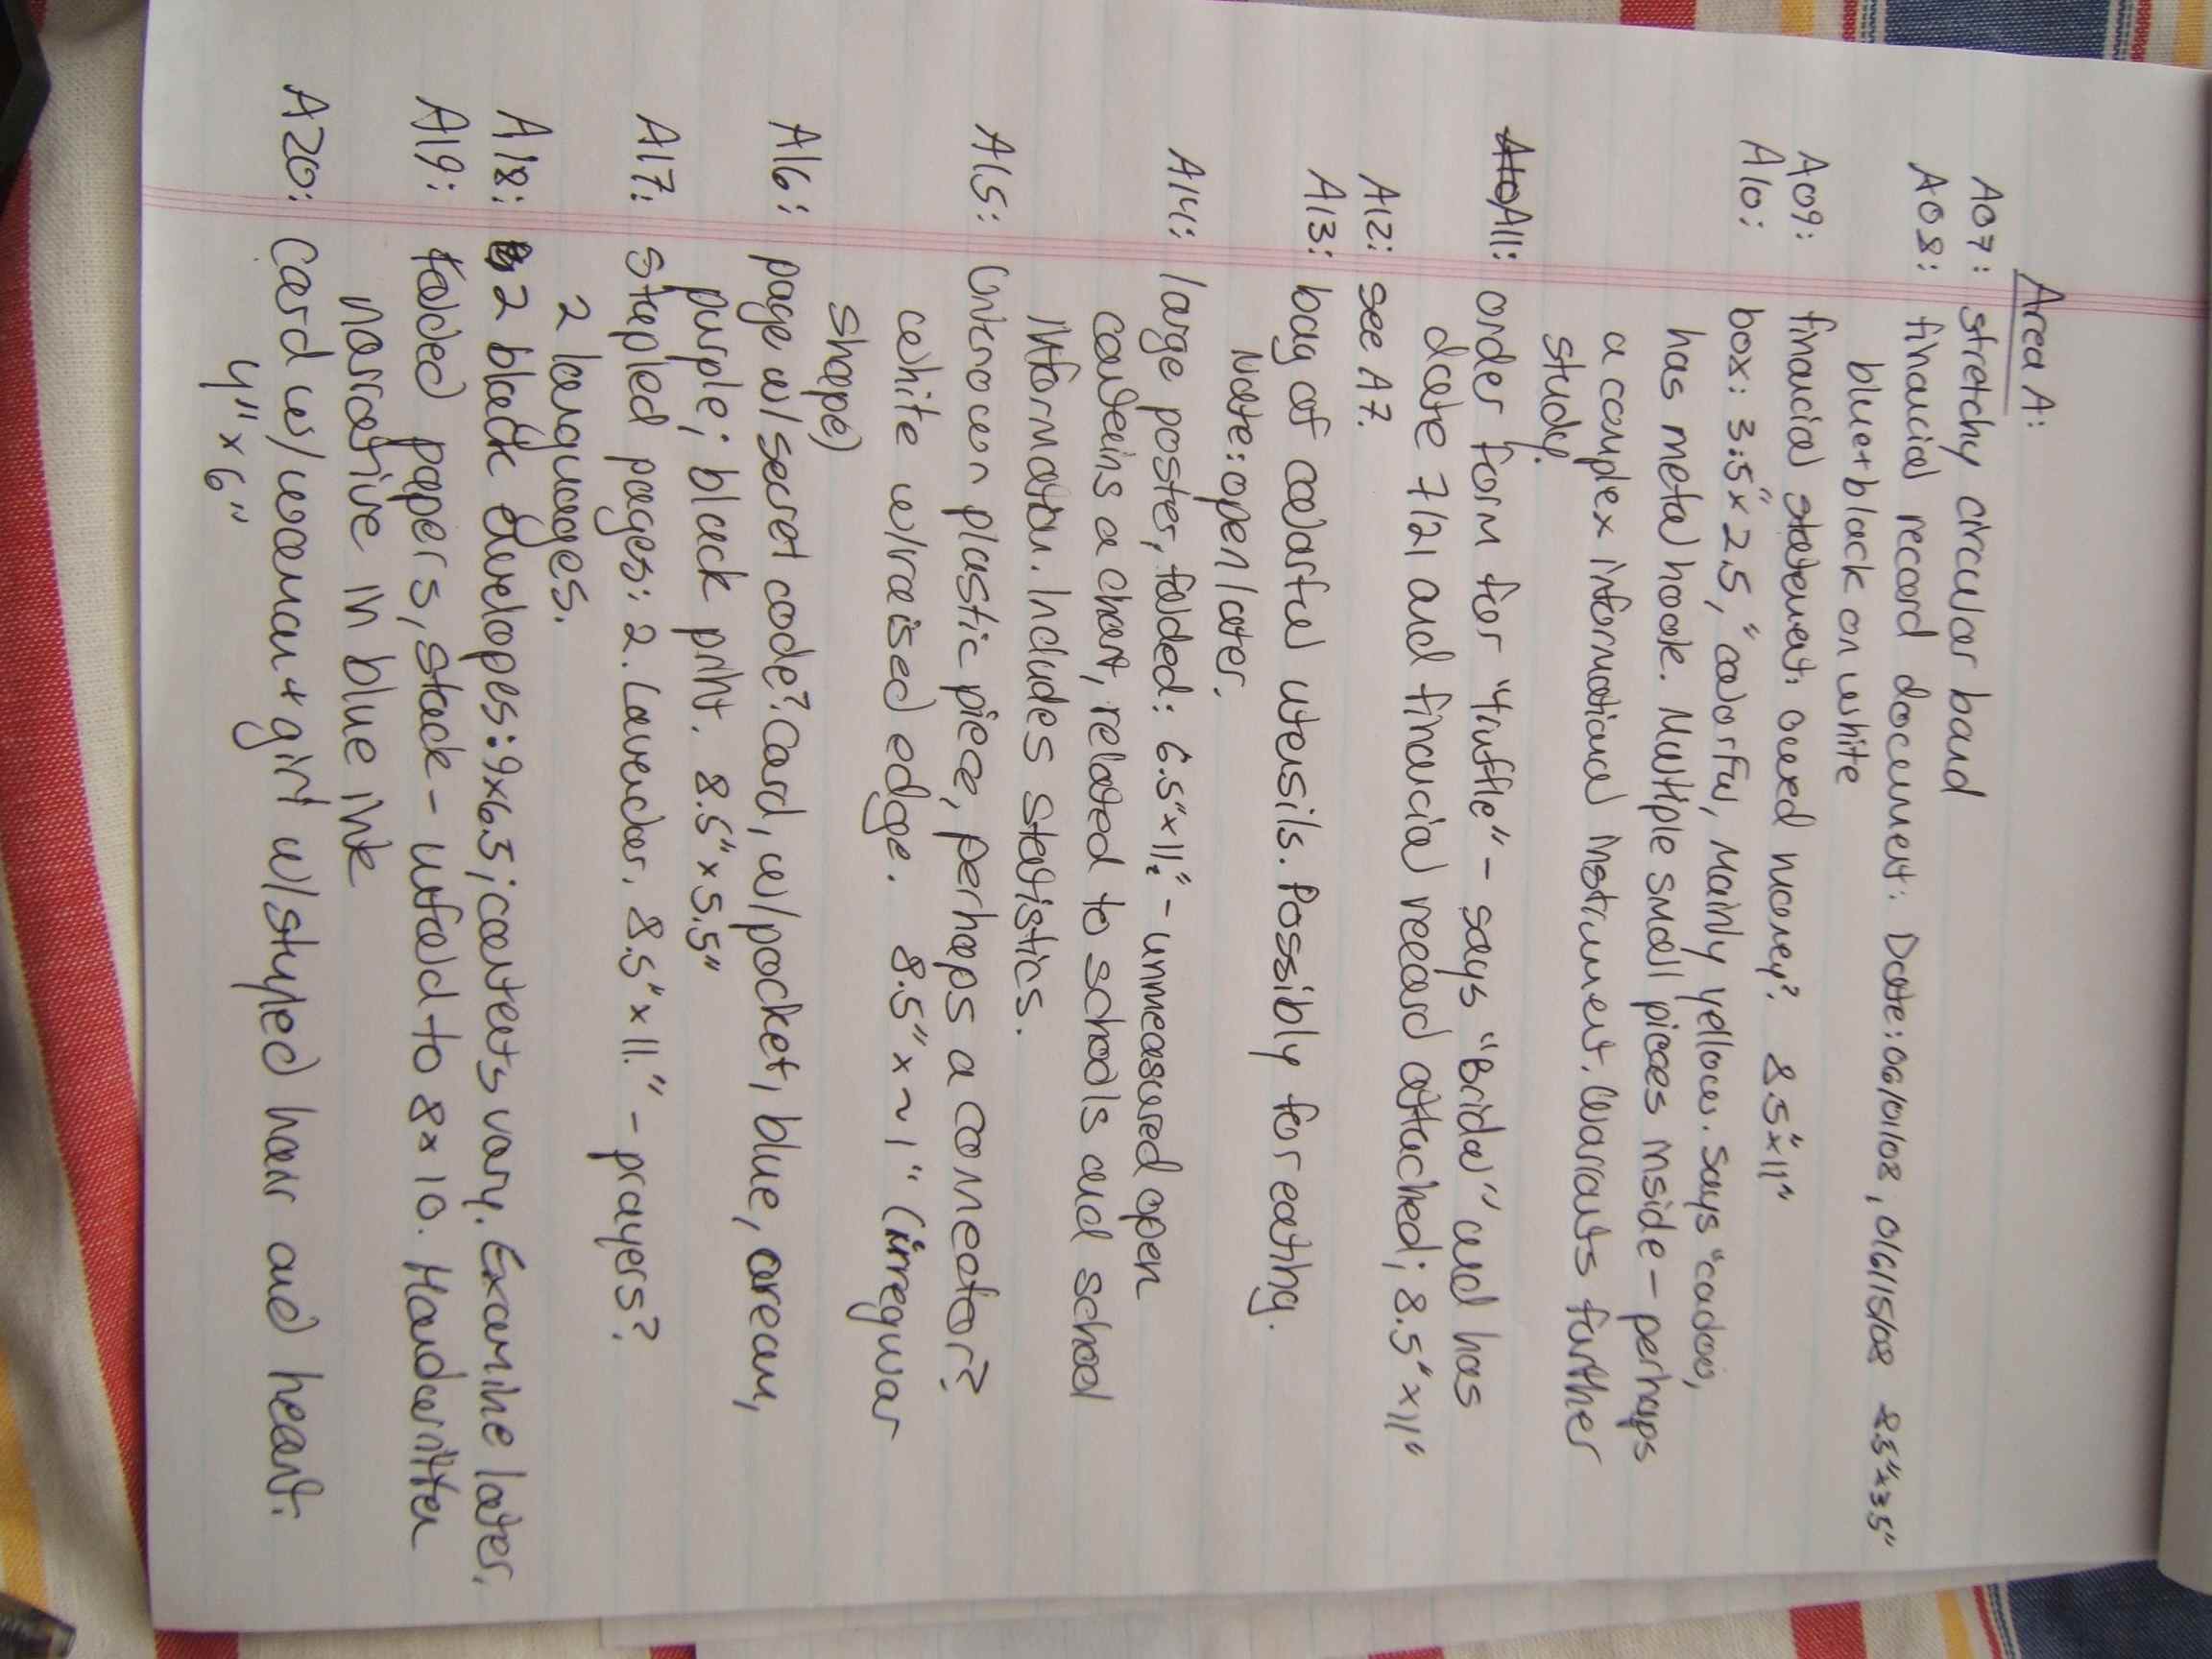 Area A:
A07: stretchy circular band
A08: financial record document: Date: 06/01/08, 06/15/08 8.5"x3.5"
blue+black on white
A09: financial statement: owed money? 8.5"x11"
A10: box: 3.5"x2.5," colorful, mainly yellow. Says "cadoo,
has metal hook. Multiple small pieces inside - perhaps
a complex informational instrument. Warrants further
study.
A10 A11: order form for - says "Bridal" and has
date 7/21 and financial record attached; 8.5"x11"
A12: see A7.
A13: bag of colorful utensils. Possibly for eating.
Note: open later.
A14: large poster, folded: 6.5"x11." - unmeasured open
contains a chart, related to schools and school
information. Includes statistics.
A15: Unknown plastic piece, perhaps a connector?
white w/raised edge. 8.5" x ~1" (irregular
shape)
A16: page w/secret code? Card, w/pocket, blue, cream,
purple; black print. 8.5"x5.5"
A17: stapled pages: 2. Lavender. 8.5"x11." - prayers?
2 languages.
A18: 2 black envelopes: 9x6.5; contents vary. Examine later.
A19: folded papers, stack - unfold to 8x10. Handwritten
narrative in blue ink
A20: Card w/woman + girl w/styled hair and heart.
4"x6"